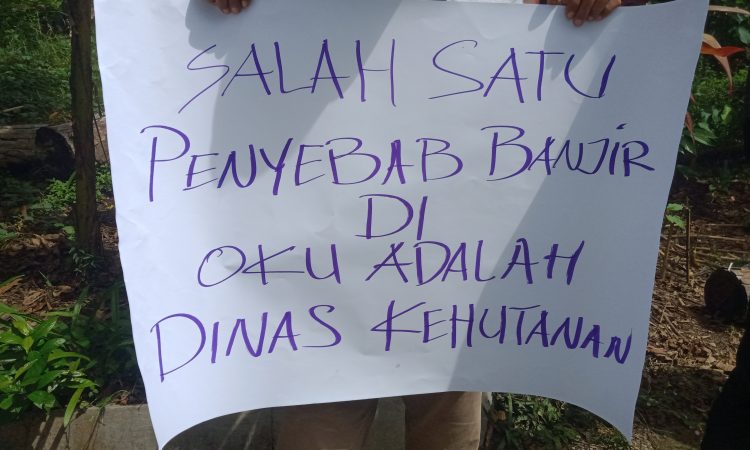 SALAH SATU
PENYEBAB BANJIR
DI
OKU ADALAH
DINAS KEHUTANAN